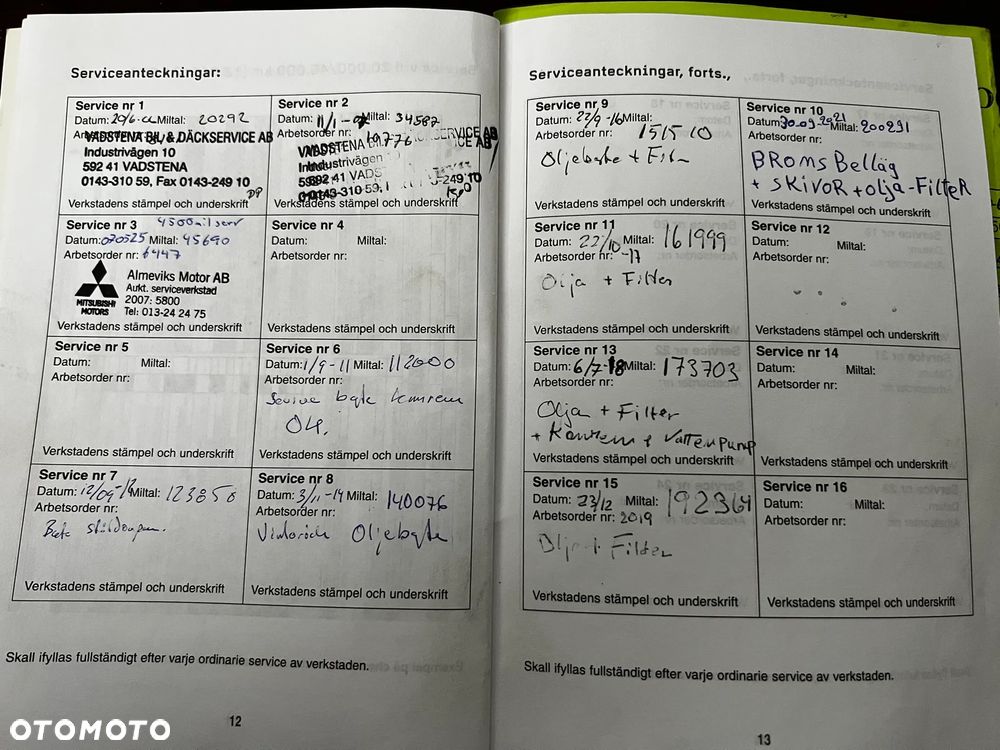 Serviceanteckningar:
Service nr 1
Datum: 20/6- Miltal: 20292
Arbetsorder nr:
VADSTENA BIL & DÄCKSERVICE AB
Industrivägen 10
592 41 VADSTENA
0143-310 59, Fax 0143-249 10
Verkstadens stämpel och underskrift
Service nr 2
Datum: 11/1-07 Miltal: 34587
Arbetsorder nr: 10776
VADSTENA BIL SERVICE AB
Industrivägen
592 41 VADS
0143-310 59, 249 10
Verkstadens stämpel och underskrift
Service nr 3 4500 mil serv
Datum: 070525 Miltal: 45690
Arbetsorder nr: 6447
Almeviks Motor AB
Aukt. serviceverkstad
2007: 5800
Tel: 013-24 24 75
MITSUBISHI
MOTORS
Verkstadens stämpel och underskrift
Service nr 4
Datum: Miltal:
Arbetsorder nr:
Verkstadens stämpel och underskrift
Service nr 5
Datum: Miltal:
Arbetsorder nr:
Verkstadens stämpel och underskrift
Service nr 6
Datum: 1/9-11 Miltal: 112000
Arbetsorder nr:
Service byte kamrem
Verkstadens stämpel och underskrift
Service nr 7
Datum: 12/09- Miltal: 123850
Arbetsorder nr:
Verkstadens stämpel och underskrift
Service nr 8
Datum: 3/11-14 Miltal: 140076
Arbetsorder nr:
Oljebyte
Verkstadens stämpel och underskrift
Skall ifyllas fullständigt efter varje ordinarie service av verkstaden.
12
Serviceanteckningar, forts.,
Service nr 9
Datum: 22/9-16 Miltal:
Arbetsorder nr: 151510
Oljebyte + Filter
Verkstadens stämpel och underskrift
Service nr 10
Datum: 30-09-2021 Miltal: 200291
Arbetsorder nr:
BROMS Belläg
+ SKIVOR + olja-FilteR
Verkstadens stämpel och underskrift
Service nr 11
Datum: 22/10-17 Miltal: 161999
Arbetsorder nr:
Olja + Filter
Verkstadens stämpel och underskrift
Service nr 12
Datum: Miltal:
Arbetsorder nr:
Verkstadens stämpel och underskrift
Service nr 13
Datum: 6/7-18 Miltal: 173703
Arbetsorder nr:
Olja + Filter
+ Kamrem + Vattenpump
Verkstadens stämpel och underskrift
Service nr 14
Datum: Miltal:
Arbetsorder nr:
Verkstadens stämpel och underskrift
Service nr 15
Datum: 23/12 Miltal: 192364
Arbetsorder nr: 2019
+ Filter
Verkstadens stämpel och underskrift
Service nr 16
Datum: Miltal:
Arbetsorder nr:
Verkstadens stämpel och underskrift
Skall ifyllas fullständigt efter varje ordinarie service av verkstaden.
13
OTOMOTO